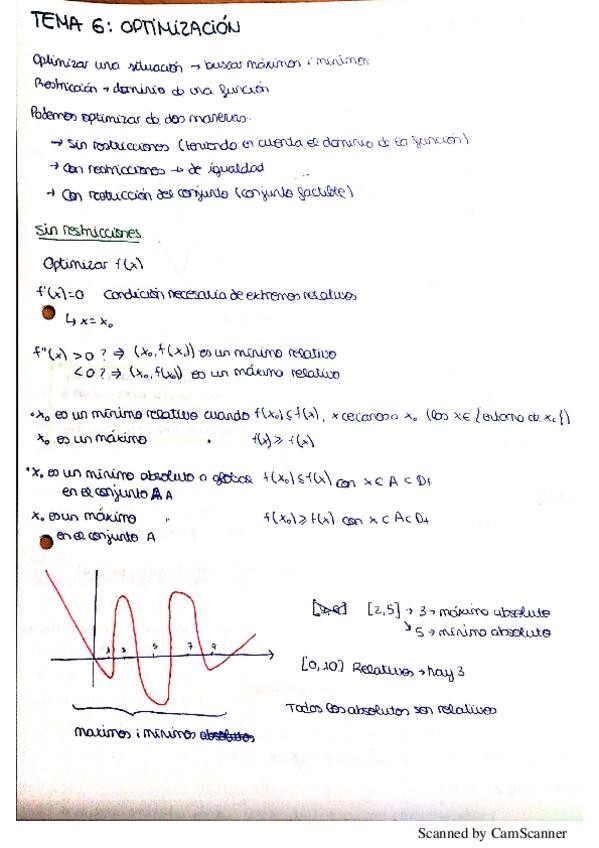 TEMA 6: OPTIMIZACIÓN
Optimizar una situación → buscar máximos i mínimos
Restricción → dominio de una función
Podemos optimizar de dos maneras:
→ Sin restricciones (teniendo en cuenta el dominio de la función)
→ Con restricciones → de igualdad
→ Con restricción del conjunto (conjunto factible)
Sin restricciones
Optimizar f(x)
f'(x)=0 Condición necesaria de extremos relativos
↳ x = x₀
f''(x) > 0 ? ⇒ (x₀, f(x₀)) es un mínimo relativo
< 0 ? ⇒ (x₀, f(x₀)) es un máximo relativo
• x₀ es un mínimo relativo cuando f(x₀) ≤ f(x), x cercano a x₀ (los x ∈ {entorno de x₀})
x₀ es un máximo " f(x₀) ≥ f(x)
• x₀ es un mínimo absoluto o global f(x₀) ≤ f(x) con x ∈ A ⊂ Df
en el conjunto A
x₀ es un máximo " f(x₀) ≥ f(x) con x ∈ A ⊂ Df
en el conjunto A
[2,5] → 3 → máximo absoluto
↘ 5 → mínimo absoluto
1 3 5 7 9
[0,10] Relativos → hay 3
Todos los absolutos son relativos
maximos i mínimos absolutos
Scanned by CamScanner